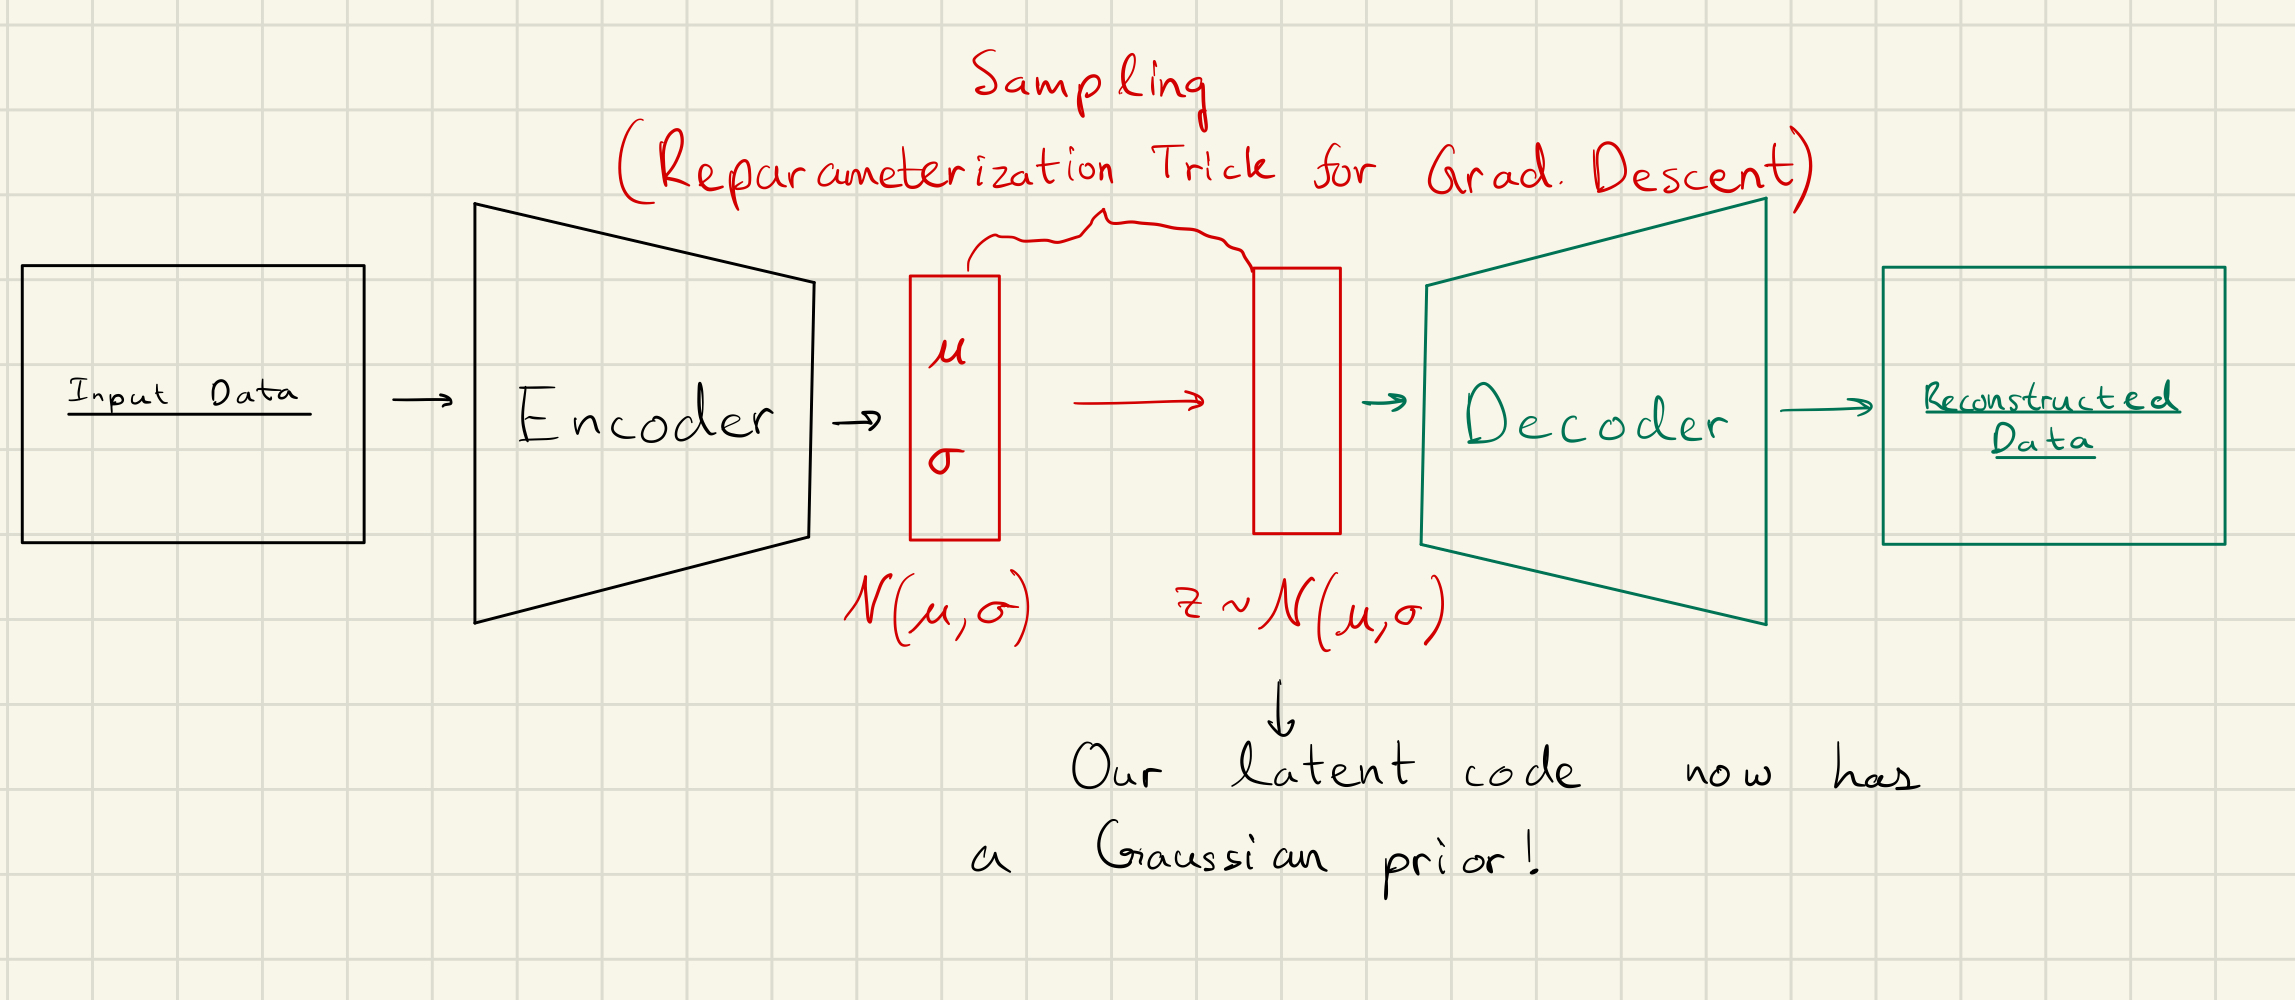 Sampling
(Reparameterization Trick for Grad. Descent)
Input Data
Encoder
μ
σ
Decoder
Reconstructed
Data
N(μ,σ)
z ~ N(μ,σ)
Our latent code now has
a Gaussian prior!